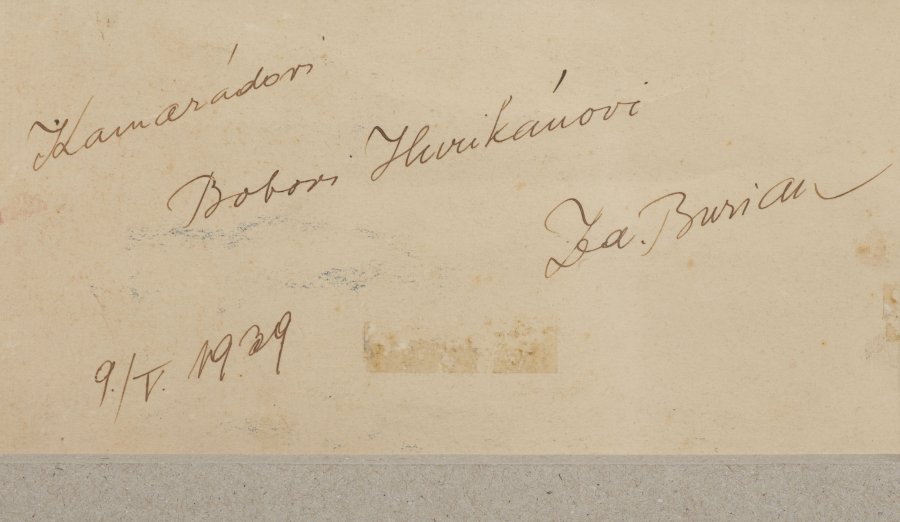 Kamarádovi
Bobovi Hurikánovi
Zd. Burian
9./V. 1939